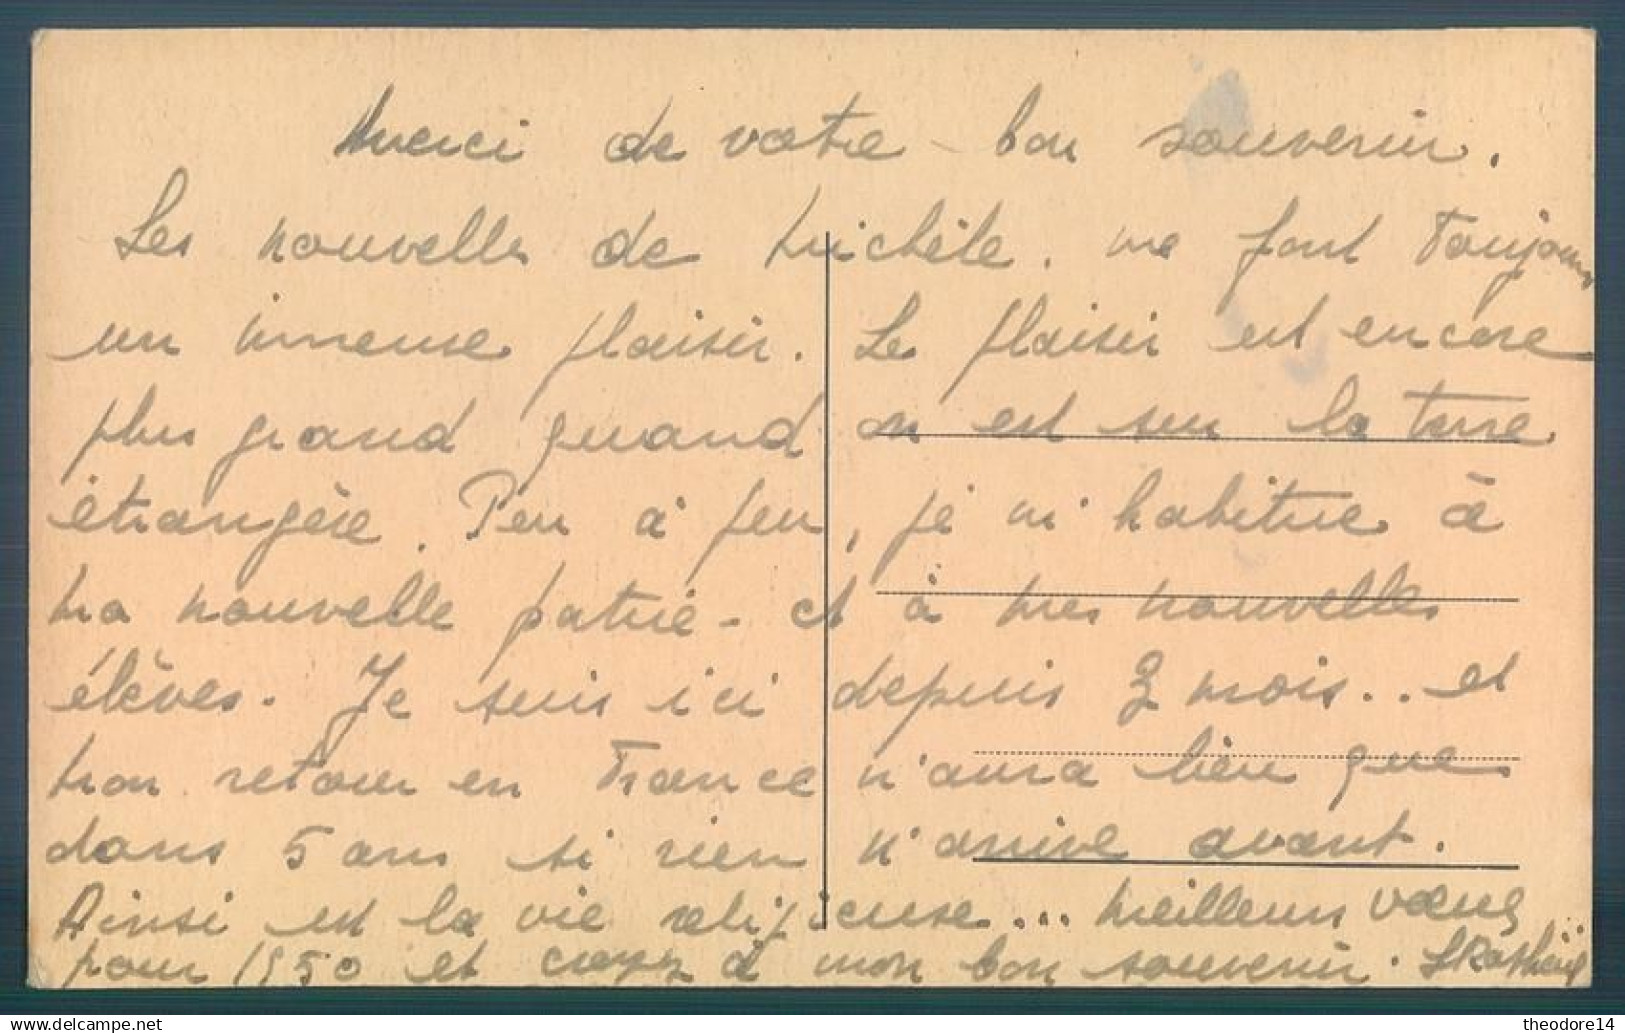 Merci de votre bon souvenir.
Les nouvelles de Michèle. me font toujours
un immense plaisir. Le plaisir est encore
plus grand quand on est sur la terre
étrangère. Peu à peu, je m'habitue à
ma nouvelle patrie - et à mes nouvelles
élèves. Je suis ici depuis 3 mois.. et
mon retour en France n'aura lieu que
dans 5 ans si rien n'arrive avant.
Ainsi est la vie religieuse... Meilleurs vœux
pour 1950 et croyez à mon bon souvenir.
www.delcampe.net
theodore14